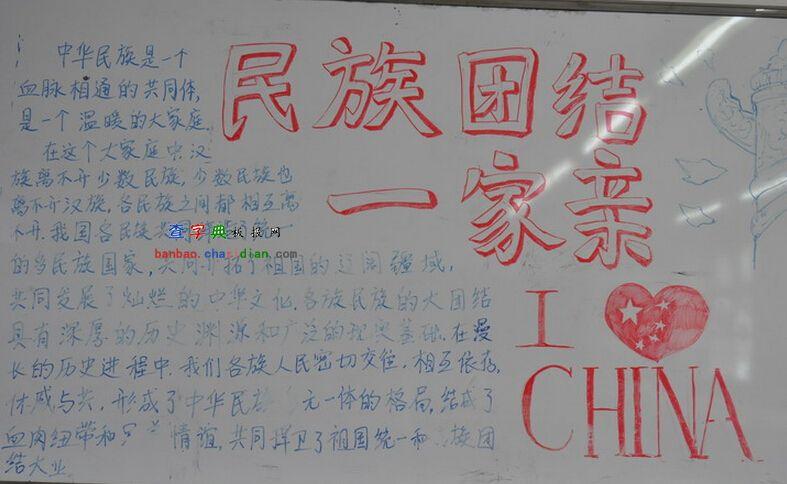 民族团结
一家亲
中华民族是一个
血脉相通的共同体,
是一个温暖的大家庭.
在这个大家庭中,汉
族离不开少数民族,少数民族也
离不开汉族,各民族之间都相互离
不开.我国各民族共同
查字典板报网
banbao.chazidian.com
的多民族国家,共同开拓了祖国的辽阔疆域,
共同发展了灿烂的中华文化.各族民族的大团结
具有深厚的历史渊源和广泛的现实基础.在漫
长的历史进程中,我们各族人民密切交往,相互依存,
休戚与共,形成了中华民族 元一体的格局,结成了
血肉纽带和 情谊,共同捍卫了祖国统一和 族团
结大业
I
CHINA